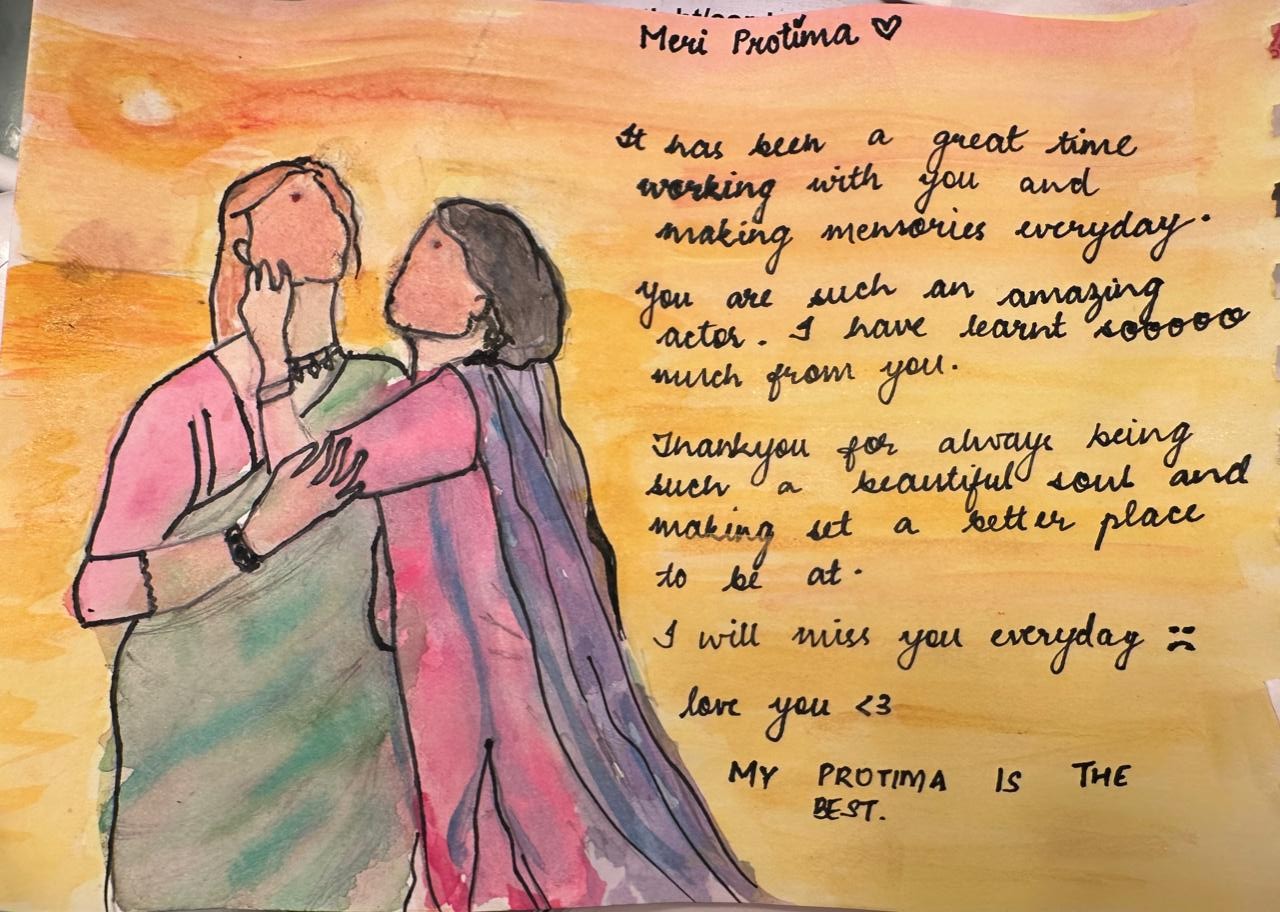 Meri Protima ♡
It has been a great time
working with you and
making memories everyday.
You are such an amazing
actor. I have learnt sooooo
much from you.
Thankyou for always being
such a beautiful soul and
making set a better place
to be at.
I will miss you everyday :(
love you <3
MY PROTIMA IS THE
BEST.